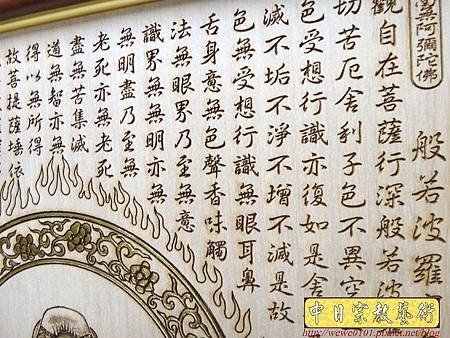 無阿彌陀佛
般若波羅
觀自在菩薩行深般若波
切苦厄舍利子色不異空
色受想行識亦復如是舍
滅不垢不淨不增不滅是故
色無受想行識無眼耳鼻
舌身意無色聲香味觸
法無眼界乃至無意
識界無無明亦無
無明盡乃至無
老死亦無老死
盡無苦集滅
道無智亦無
得以無所得
故菩提薩埵依
中日宗教藝術
http://wewe0101.pixnet.net/blog